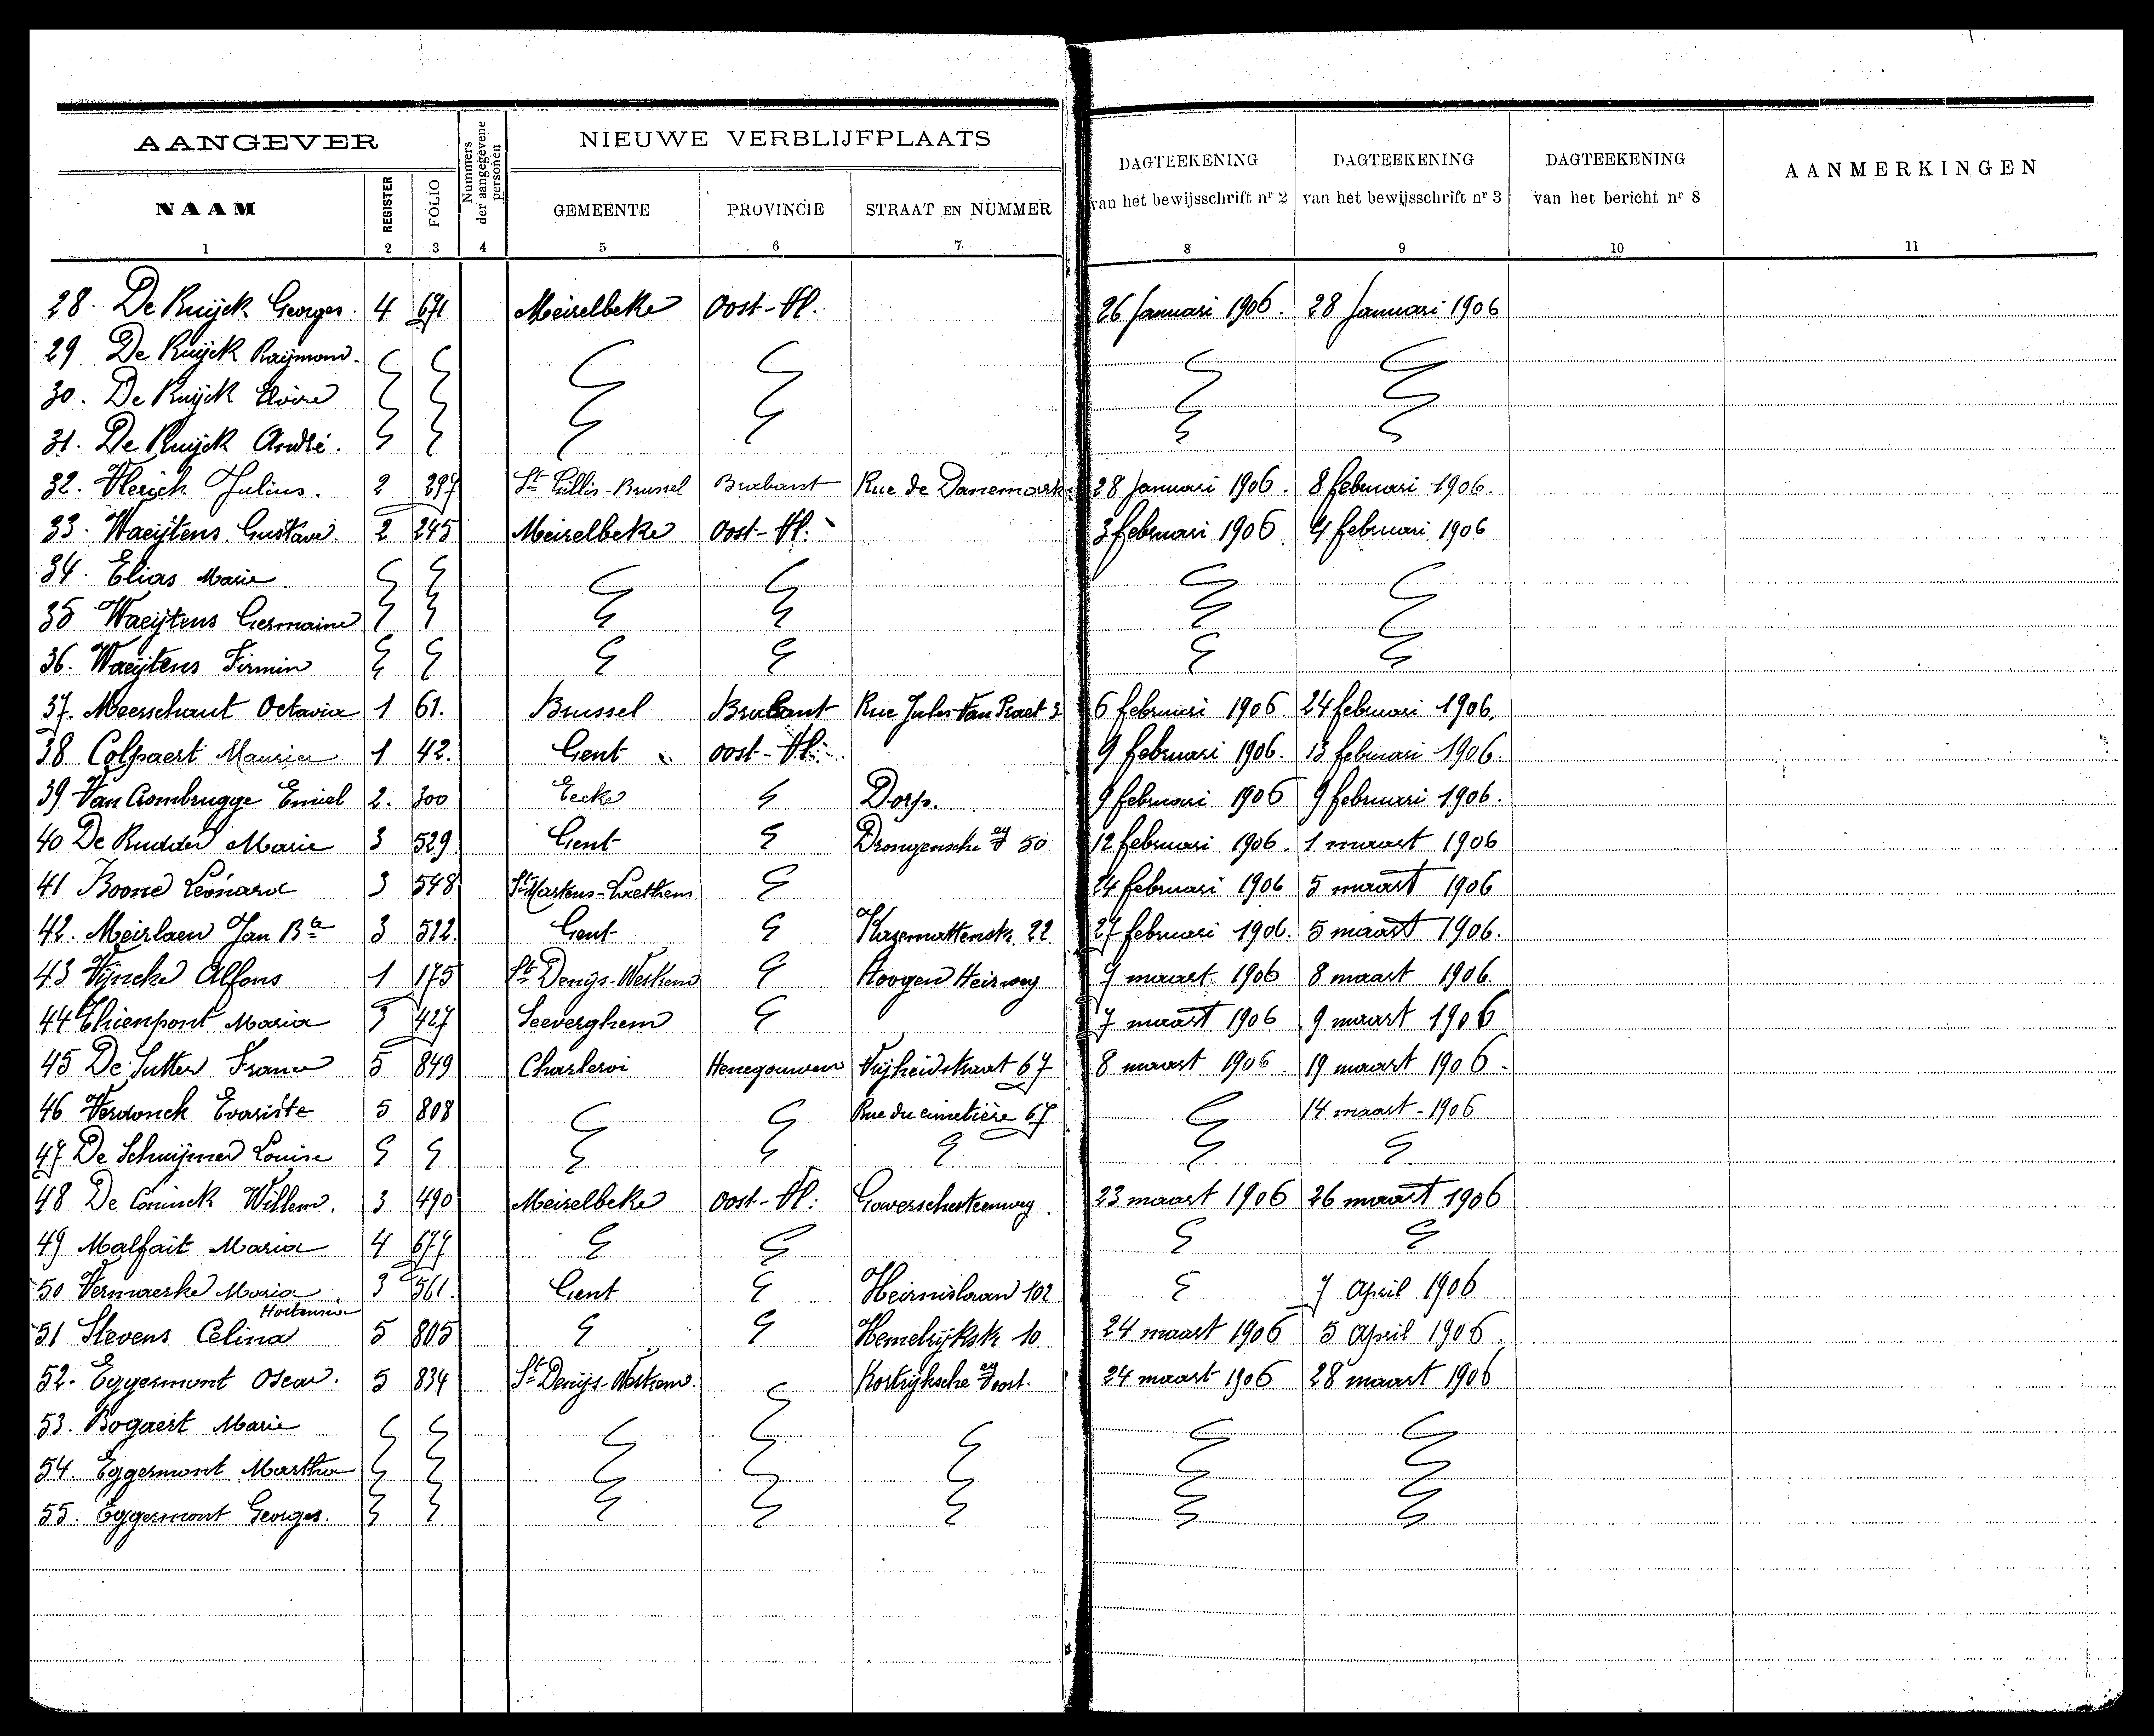 AANGEVER
Nummers der aangegevene personen
NIEUWE VERBLIJFPLAATS
DAGTEEKENING van het bewijsschrift nr 2
DAGTEEKENING van het bewijsschrift nr 3
DAGTEEKENING van het bericht nr 8
AANMERKINGEN
NAAM REGISTER FOLIO GEMEENTE PROVINCIE STRAAT EN NUMMER
1 2 3 4 5 6 7. 8 9 10 11
28. De Ruijck Georges. 4 671 Meirelbeke Oost-Vl. 26 Januari 1906. 28 Januari 1906
29 De Ruijck Raijmond.
30. De Ruijck Elvire
31. De Ruijck André.
32. Vlerick Julius. 2 297 St Gillis-Brussel Brabant Rue de Danemark 28 Januari 1906. 8 februari 1906.
33. Waeijtens Gustave. 2 245 Meirelbeke Oost-Vl. 3 februari 1906. 4 februari 1906
34. Elias Marie
35 Waeijtens Germaine
36. Waeijtens Firmin
37. Meerschaut Octavia 1 61. Brussel Brabant Rue Jules Van Praet 6 februari 1906. 24 februari 1906.
38 Colpaert Maurice 1 42. Gent Oost-Vl. 9 februari 1906. 13 februari 1906.
39 Van Crombrugge Emiel 2. 300 Eecke Dorp. 9 februari 1906 9 februari 1906.
40 De Rudder Marie 3 529. Gent Drongensche 50 12 februari 1906. 1 maart 1906
41 Boone Leonard 3 548 St Martens-Laethem 24 februari 1906 5 maart 1906
42. Meirlaen Jan Bte 3 522. Gent Kazemattenstr. 22 27 februari 1906. 5 maart 1906.
43 Vijncke Alfons 1 175 St Denijs-Westrem Hoogen Heirweg 7 maart 1906 8 maart 1906.
44 Thienpont Maria 3 427 Seeverghem 7 maart 1906 9 maart 1906
45 De Sutter Franc 5 849 Charleroi Henegouwen Vrijheidstraat 67 8 maart 1906. 19 maart 1906.
46 Verdonck Evariste 5 808 Rue du cimetière 67 14 maart-1906
47 De Schuijmer Louise
48 De Coninck Willem. 3 490 Meirelbeke Oost-Vl. 23 maart 1906 26 maart 1906
49 Malfait Maria 4 677
50 Vermaerke Maria 3 561. Gent Heirnislaan 102 7 April 1906
Hortensia
51 Stevens Celina 5 805 Hemelrijkstr 10 24 maart 1906 5 April 1906.
52. Eggermont Oscar. 5 834 St Denijs-Westrem. Kortrijksche 24 maart 1906 28 maart 1906
53. Bogaert Marie
54. Eggermont Martha
55. Eggermont Georges.